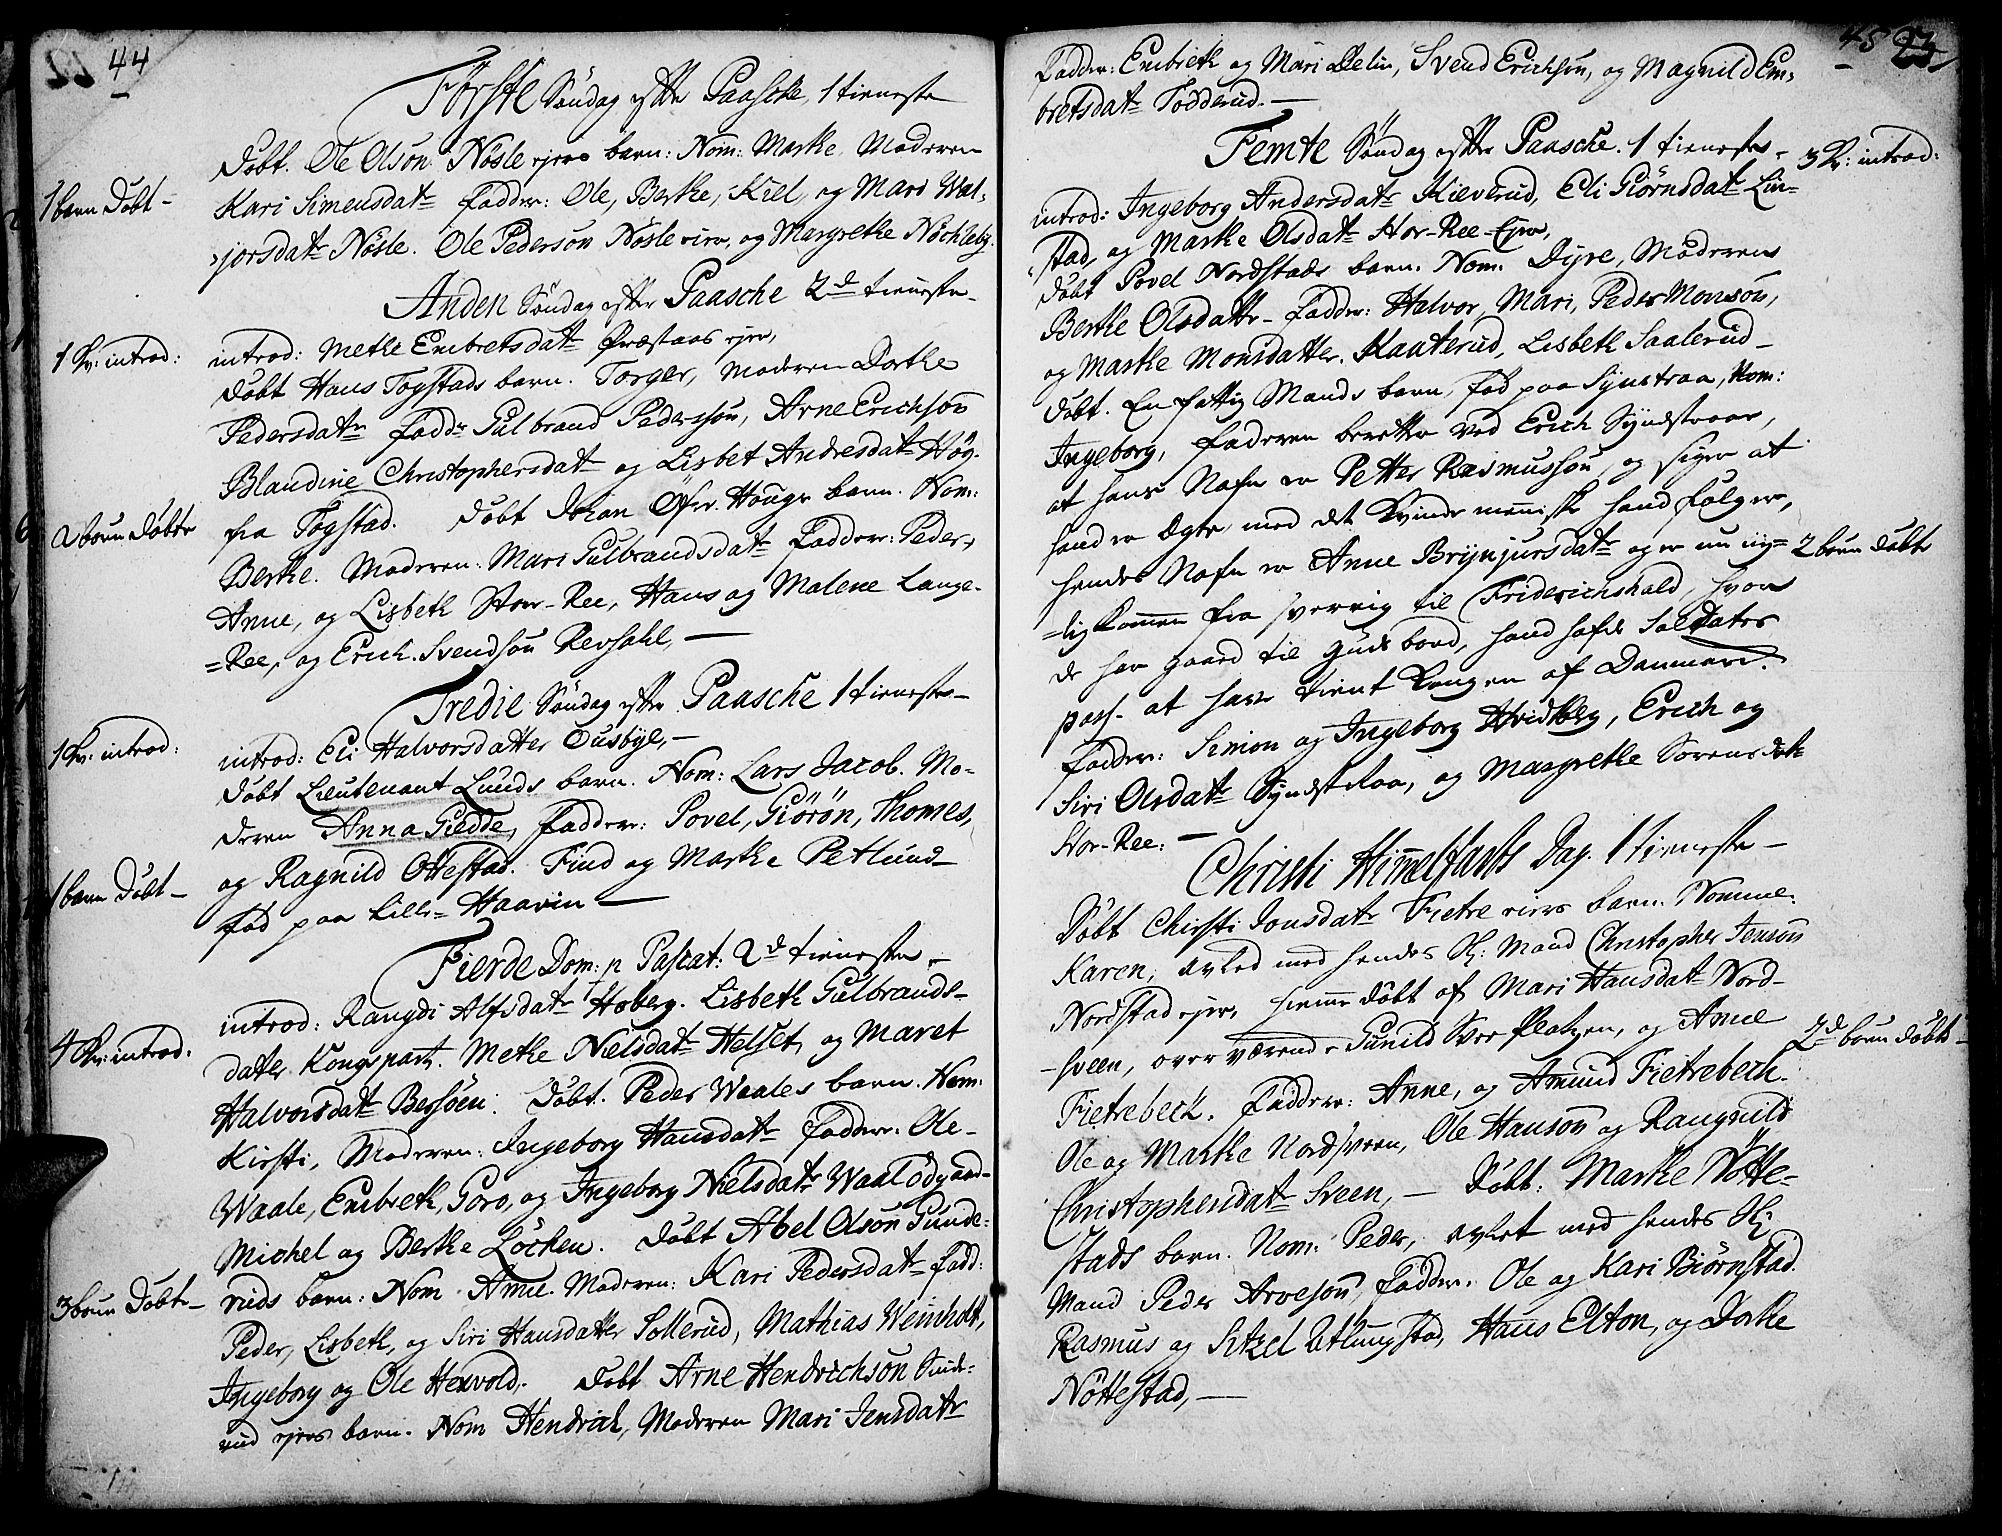 44
Første Søndag efter Paasche, 1 tieneste
døbt. Ole Olsøn Nøsle ejers barn: Nom: Marthe, Moderen
1 barn døbt –
Kari Simensdatr fadder: Ole, Berthe, Kiel, og Mari Wal-
jorsdatr Nøsle. Ole Pedersøn Nøsle eier, og Margrethe Nøchleby.
Anden Søndag efter Paasche 2d tieneste –
1 Kv: introd:
introd: Methe Embretsdatr Præstaas ejer,
døbt Hans Togstads barn. Torger, moderen Dorthe
Pedersdatr faddr Gulbrand Pederssøn, Arne Erichsøn
Blandine Christophersdatr og Lisbet Andresdatr Høy-
2 børn døbte
fra Togstad. døbt Johan Øfre Houge barn. Nom:
Berthe. Moderen: Mari Gulbrandsdatr Fadder: Peder,
Anne, og Lisbeth Stor-Ree, Hans og Malene Lange-
=Ree, og Erich Svendsøn Revhohl, —
Tredie Søndag efter Paasche 1 tieneste –
1 Kv: introd:
introd: Eli Halvorsdatter Ousbye, –
døbt Lieutenant Lunds barn. Nom: Lars Jacob. Mo-
deren Anna Giedde, Fadder: Povel, Giørøn, Thomes,
1 barn døbt –
og Ragnild Ottestad. Find og Marthe Petlund
fød paa Lille= Haavin —
Fierde Dom: p Pascat: 2d tieneste –
introd: Rangdi Alfsdatr Hoberg. Lisbeth Gulbrands-
4 Kv: introd:
datter Kongspart. Methe Nielsdatr Helset, og Maret
Halvorsdatr Berhøen: Døbt. Peder Waales barn. Nom:
Kirsti, Moderen: Ingeborg Hansdatr Fadder: Ole –
Waale, Embreth, Goro, og Ingeborg Nielsdatr Waalødgaard
Michel og Berthe Løcken. døbt Abel Olsøn Gunde-
3 børn døbte –
ruds barn: Nom. Anne. Moderen: Kari Pedersdatr fadd:
Peder, Lisbeth, og Siri Hansdatter Sollerud, Mathias Weinholt,
Ingeborg og Ole Hervold. døbt Arne Hendrichsøn Sunde-
rud ejers barn. Nom Hendrich, Moderen Mari Jensdatr
45 23
Fadder: Embreth og Mari Delin, Svend Erichsøn, og Magnild Em-
bretsdatr Tødderud. —
Femte Søndag efter Paasche. 1 tieneste –
3 Kv: introd:
introd: Ingeborg Andersdatr Kieverud, Eli Giørnsdatr Lin-
stad, og Marthe Olsdatr Stor-Ree-Ejer,
døbt Povel Nordstads barn. Nom: Dyre, Moderen
Berthe Olsdattr – Fadder: Halvor, Mari, Peder Monsøn,
og Marthe Monsdatter Kaaterud, Lisbeth Saalerud –
døbt. En fattig Mands barn, fød paa Synstraa, Nom:
Ingeborg, Faderen beretter ved Erich Syndstraae,
at hans Nafn er Petter Rasmussøn, og siger at
hand er Ægte med det Qvindemenniske hand følger,
2 børn døbte
hendes Nafn er Anne Brynjursdatr og er nu ny=
=lig kommen fra Sverrig til Friderichshald, hvor
de har gaaed til Guds bord, hand hafde Soldater
pass at have tient Kongen af Danmarc.
Fadder: Simon og Ingeborg Hvidberg, Erich og
Siri Olsdatr Syndstraa, og Margrethe Sørensdatr
Stor-Ree. —
Christi Himelfarts Dag. 1 tieneste –
døbt Chirsti Jonsdatr Fietre eiers barn. Nomine:
Karen, avled med hendes Sl: Mand Christopher Jensøn
Nordstad ejer, hieme døbt af Mari Hansdatr Nord-
2de børn døbte –
-sveen, overværende Gunild Svee Platzen, og Anne
Fietrebeck. Fadder: Anne, og Amund Fietrebech.
Ole og Marthe Nordsveen, Ole Hansøn og Rangnild
Christophersdatr Sveen, – Døbt: Marthe Nøtte-
stads barn. Nom: Peder, avlet med hendes Sl:
Mand Peder Arvesøn, Fadder. Ole og Kari Biørnstad.
Rasmus og Sitzel Utlungstad, Hans Elton, og Dorthe
Nøttestad, —